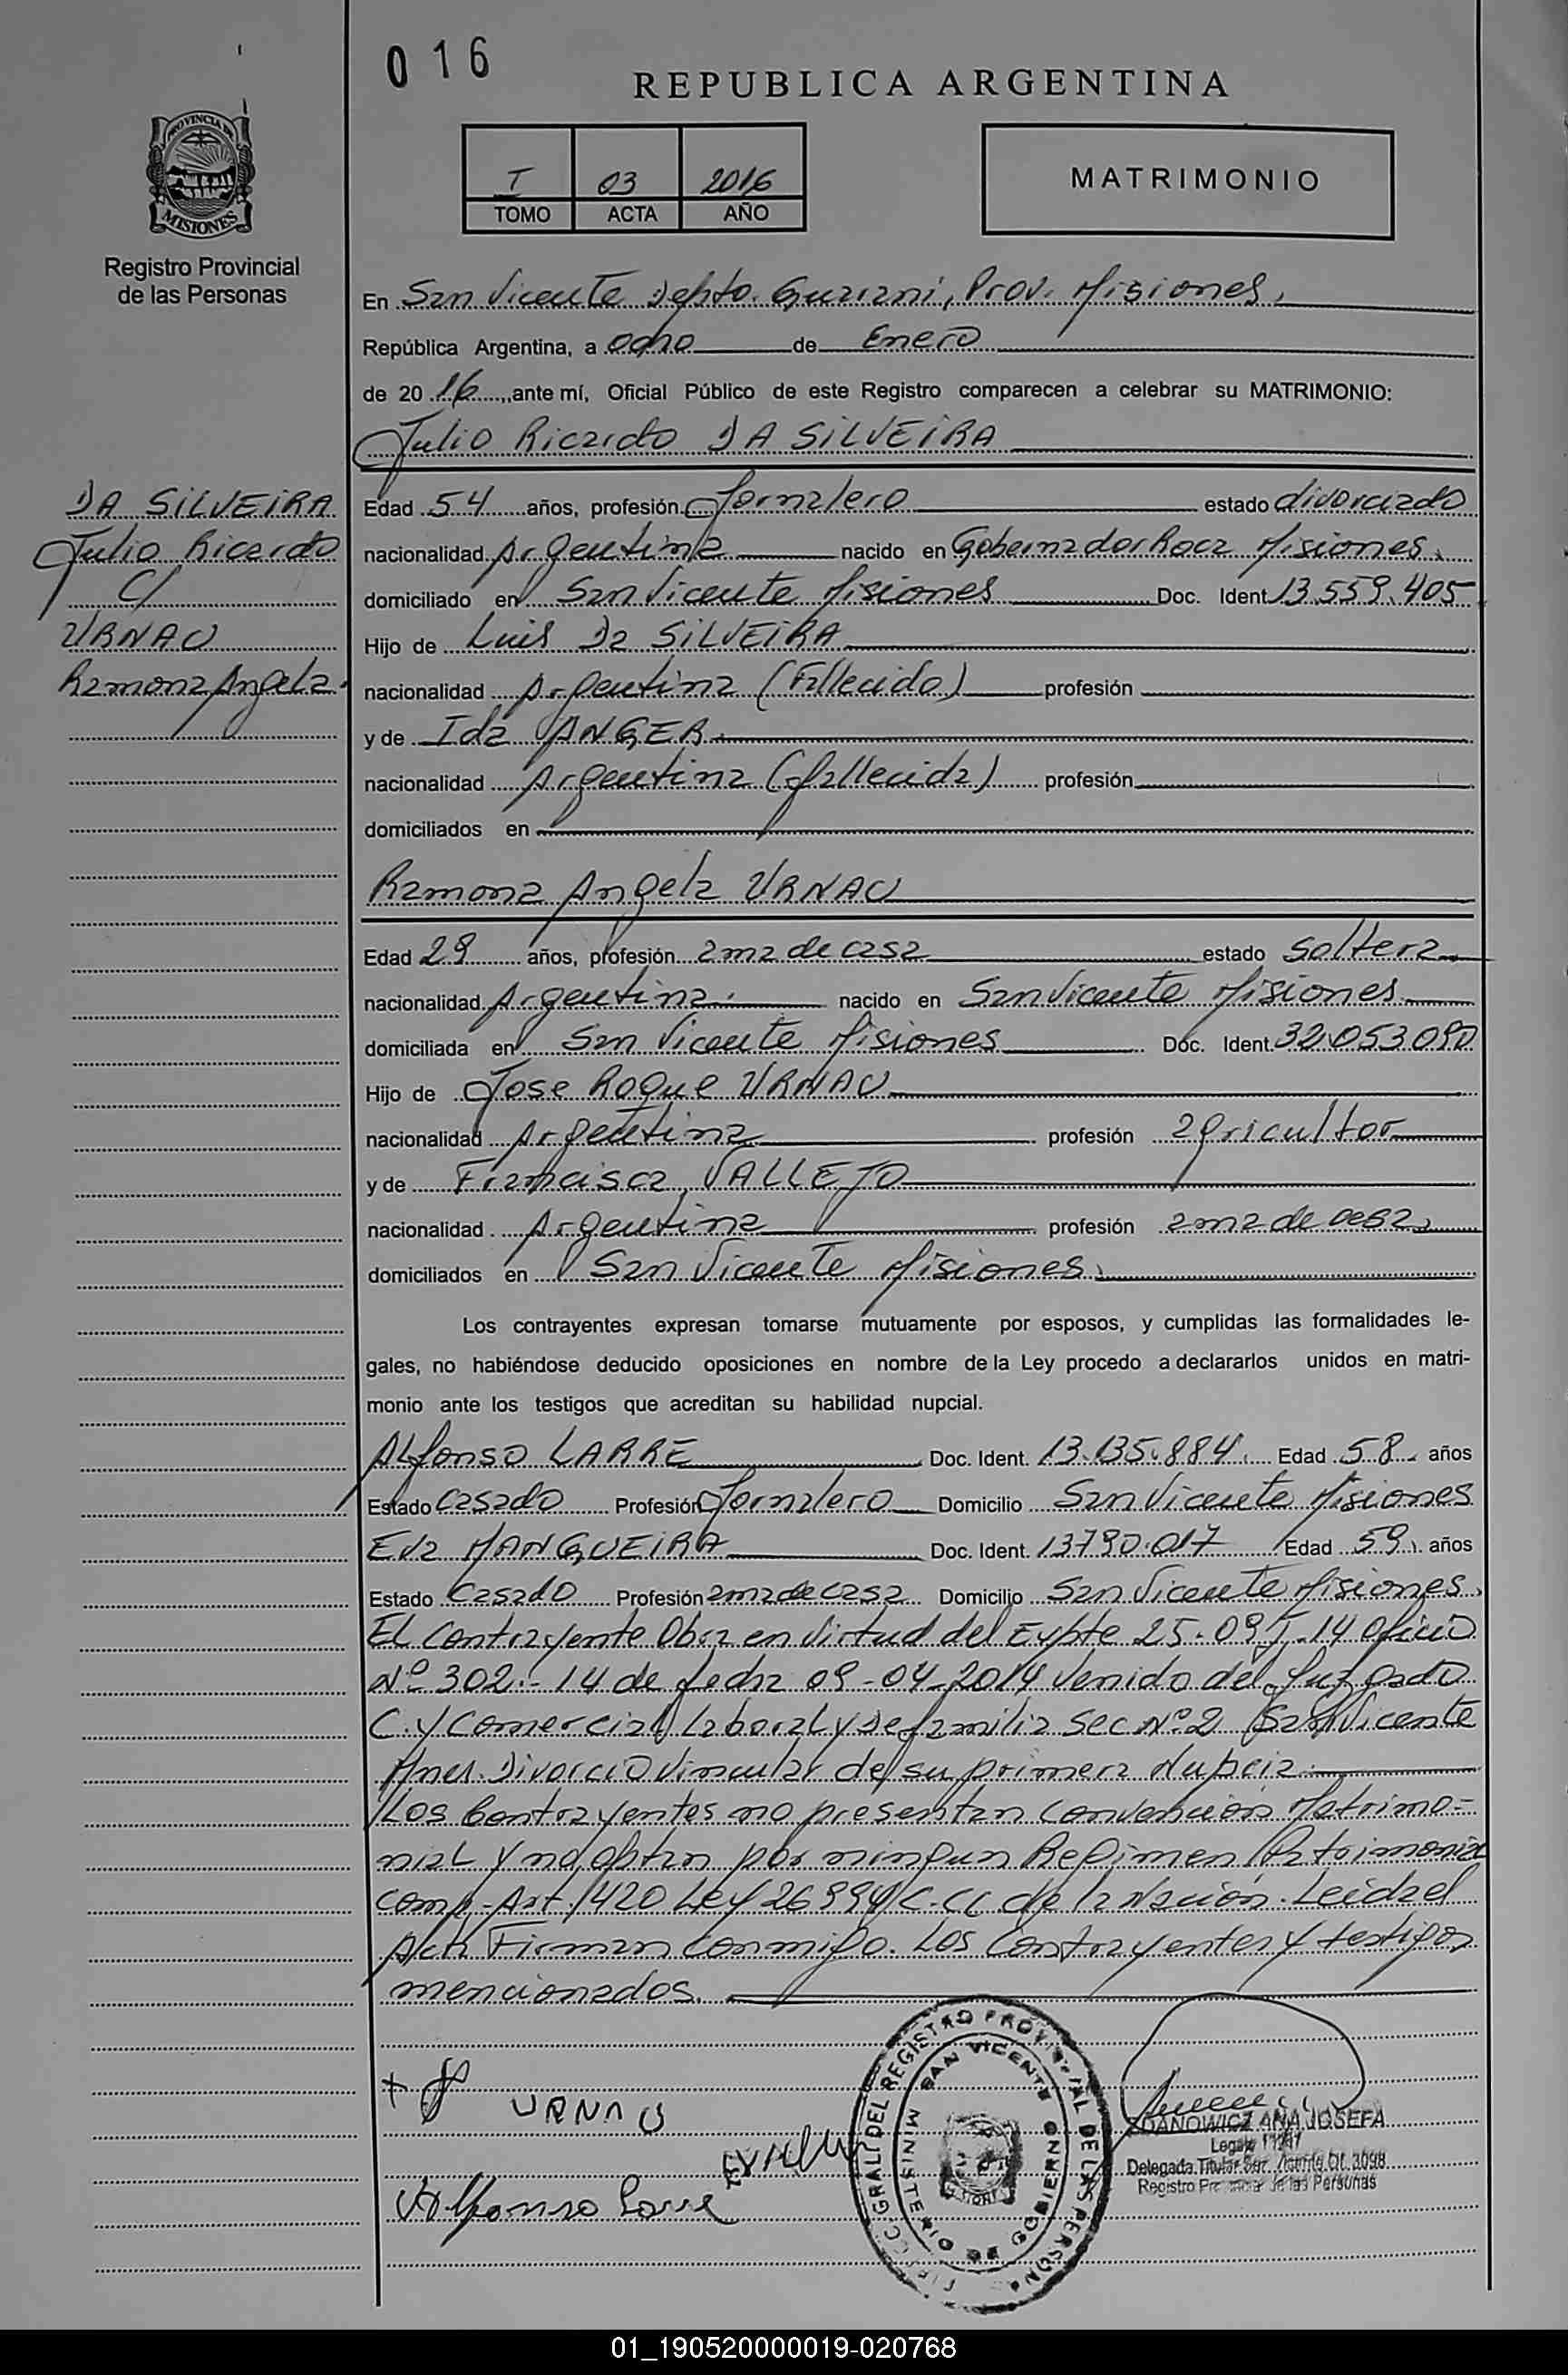 016
REPUBLICA ARGENTINA
PROVINCIA DE
MISIONES
Registro Provincial
de las Personas
I 03 2016
TOMO ACTA AÑO
MATRIMONIO
En San Vicente Depto. Guarani, Prov. Misiones,
República Argentina, a ocho de Enero
de 2016, ante mí, Oficial Público de este Registro comparecen a celebrar su MATRIMONIO:
Julio Ricardo DA SILVEIRA
DA SILVEIRA
Julio Ricardo
C/
URNAU
Ramona Angela.
Edad 54 años, profesión Jornalero estado divorciado
nacionalidad Argentina nacido en Gobernador Roca Misiones.
domiciliado en San Vicente Misiones Doc. Ident 13.559.405
Hijo de Luis Da SILVEIRA
nacionalidad Argentina (Fallecido) profesión
y de Ida ANGER
nacionalidad Argentina (fallecida) profesión
domiciliados en
Ramona Angela URNAU
Edad 29 años, profesión ama de casa estado Soltera
nacionalidad Argentina. nacido en San Vicente Misiones
domiciliada en San Vicente Misiones Doc. Ident. 32.053.090
Hijo de Jose Roque URNAU
nacionalidad Argentina profesión agricultor
y de Francisca VALLEJO
nacionalidad Argentina profesión ama de casa
domiciliados en San Vicente Misiones.
Los contrayentes expresan tomarse mutuamente por esposos, y cumplidas las formalidades le-
gales, no habiéndose deducido oposiciones en nombre de la Ley procedo a declararlos unidos en matri-
monio ante los testigos que acreditan su habilidad nupcial.
Alfonso LARRE Doc. Ident. 13.135.884. Edad 58 años
Estado casado Profesión Jornalero Domicilio San Vicente Misiones
Eva MANGUEIRA Doc. Ident. 13790.017 Edad 59 años
Estado Casado Profesión ama de casa Domicilio San Vicente Misiones.
El Contrayente Obra en Virtud del Expte 25-09 14 Oficio
Nº 302-14 de fecha 09-04-2014 Venido del Juzgado
C. y Comercial Laboral y de familia Sec Nº 2 San Vicente
Mnes. Divorcio Vincular de su primera Nupcia.
Los Contrayentes no presentan Convención Matrimo-
nial y no optan por ningun Regimen Patrimonial
comp. Art. 1420 Ley 26994 C.CC de la Nación. Leida el
Acta Firman conmigo. Los Contrayentes y testigos
mencionados.
URNAU
Alfonso Larre
GRAL. DEL REGISTRO PROVINCIAL DE LAS PERSONAS
SAN VICENTE
MINISTERIO DE GOBIERNO
DANOWICZ ANA JOSEFA
Delegada Titular
Registro Provincial de las Personas
01_190520000019-020768